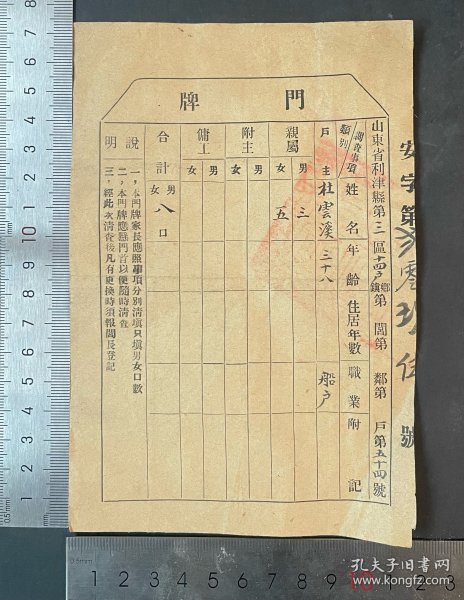 門牌
安字第 號
山東省利津縣第三區 鄉鎮第 閭第 鄰第 戶第五十四號
調查事項 類別 姓名 年齡 住居年數 職業 附記
戶主 杜雲溪 三十八 船戶
親屬 男 三
女 五
附主 男
女
傭工 男
女
合計 男 女 八口
說明
一，本門牌家長應照事項分別清填只填男女口數
二，本門牌應懸門首以便隨時清查
三，經此次清查後凡有更換時須報閭長登記
0.5mm
0.5mm 1 2 3 4 5 6 7 8 9 10 11 12 13
孔夫子旧书网
www.kongfz.com